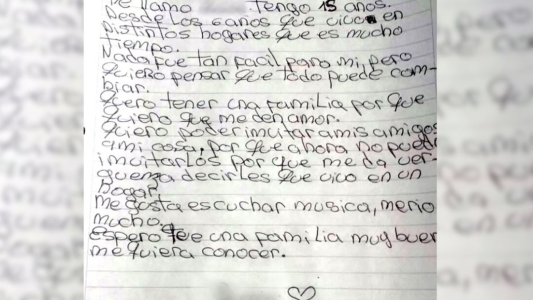 Me llamo Tengo 15 años.
Desde los 6 años que vivo en
distintos hogares que es mucho
tiempo.
Nada fue tan facil para mi, pero
quiero pensar que todo puede cam-
biar.
Quero tener una familia por que
quiero que me den amor.
Quiero poder invitar a mis amigos
a mi casa, por que ahora no puedo
invitarlos por que me da ver-
guenza decirles que vivo en un
Hogar
me gusta escuchar musica, me rio
mucho
espero que una familia muy buen
me quiera conocer.